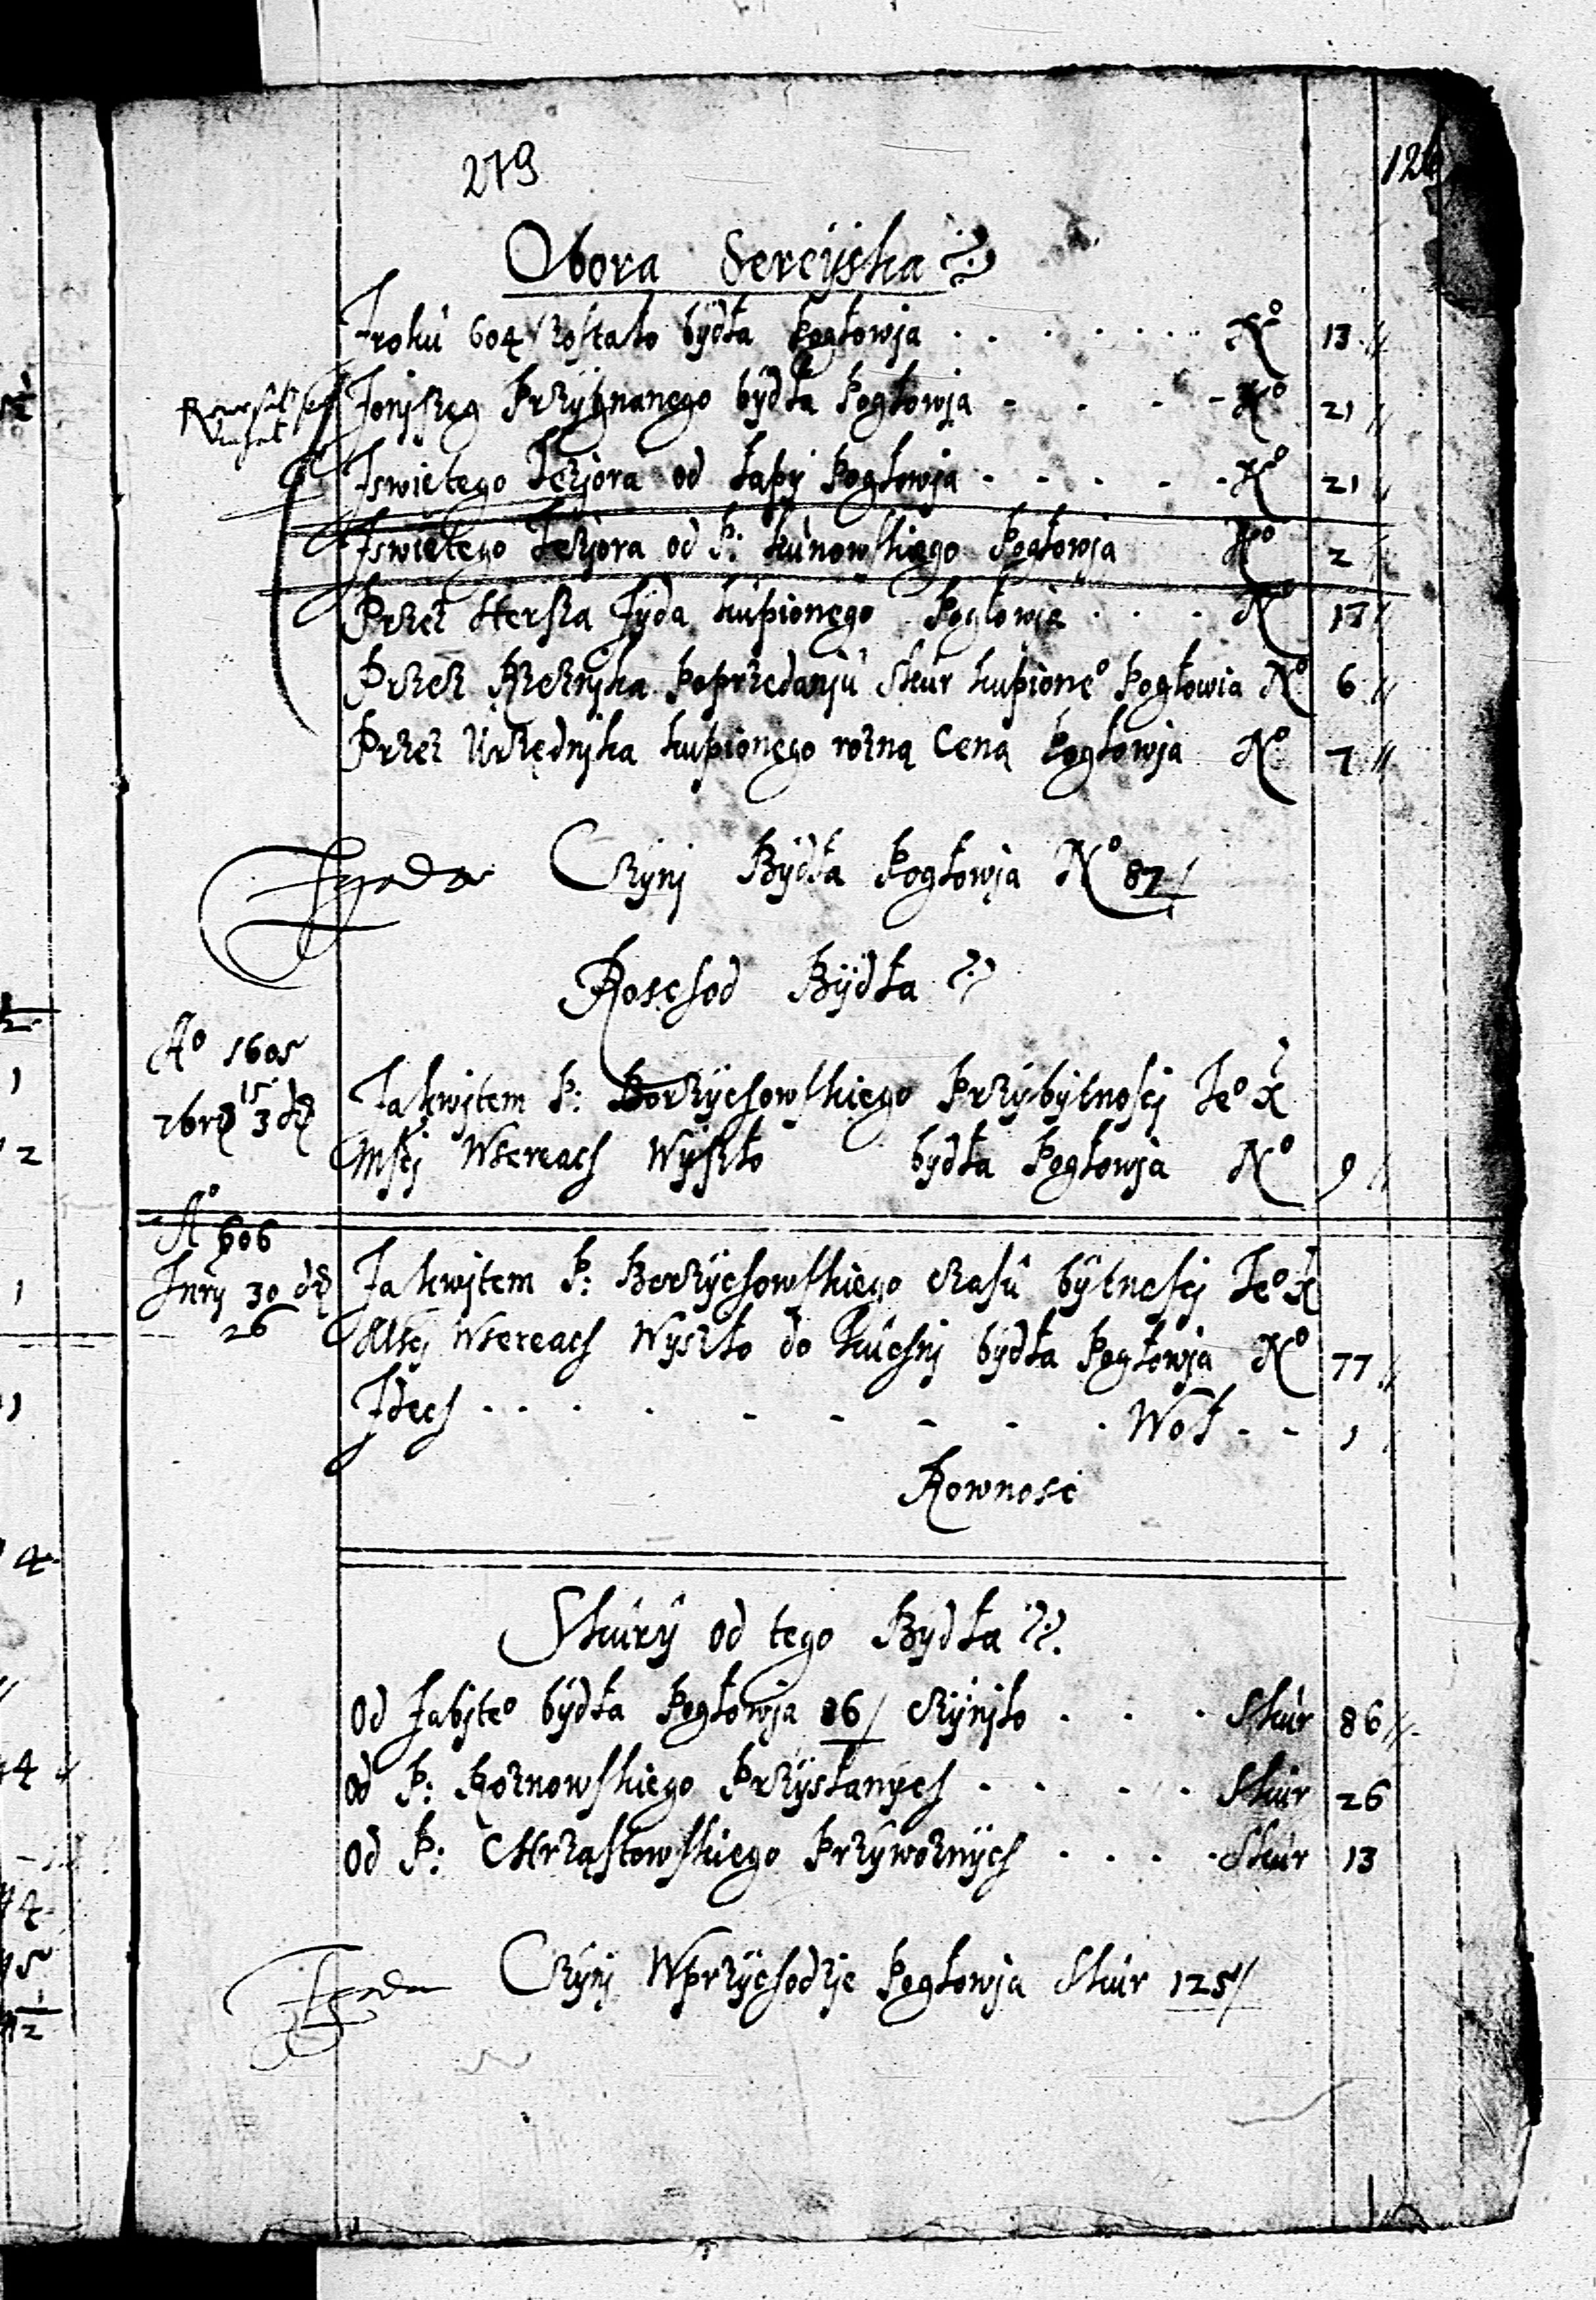 279
126
Obora Sereÿska
Z roku 604 Zostało bÿdła Pogłowja Nº 13
Przÿgnanego bÿdła Pogłowja Nº 21
Z swiętego Jezjora od Łapÿ Pogłowja Nº 21
Z swiętego Jezjora od P: Kunowskiego Pogłowja Nº 2
Przez Herszka Zÿda kupionego Pogłowja Nº 17
Przez Rzeznika Poprzedanju Skur kupioneº Pogłowia Nº 6
Przez Urzędnika kupionego rozną Ceną Pogłowja Nº 7
Zgoda Czÿni Bÿdła Pogłowja Nº 87
Roschod Bÿdła
Aº 1605
15
3
Za kwitem P: Borzÿchowskiego Przÿbÿtnosci Jeº X
Msci Wsereach Wÿszło bÿdła Pogłowja Nº 9
Aº 606
Jnrÿ 30
26
Za kwitem P: Borzÿchowskiego Czasu bÿtnosci Jeº X
Msci Wsereach Wÿszło do Kuchni bÿdła Pogłowja Nº 77
Zdech Woł 1
Rownosc
Skurÿ od tego Bÿdła
Od Zabiteº bÿdła Pogłowja 86 Czÿniło Skur 86
Od P: Roznowskiego Przÿsłanÿch Skur 26
Od P: Chrząstowskiego Przÿwoznÿch Skur 13
Zgoda Czÿni Wprzÿchodzje Pogłowja Skur 125